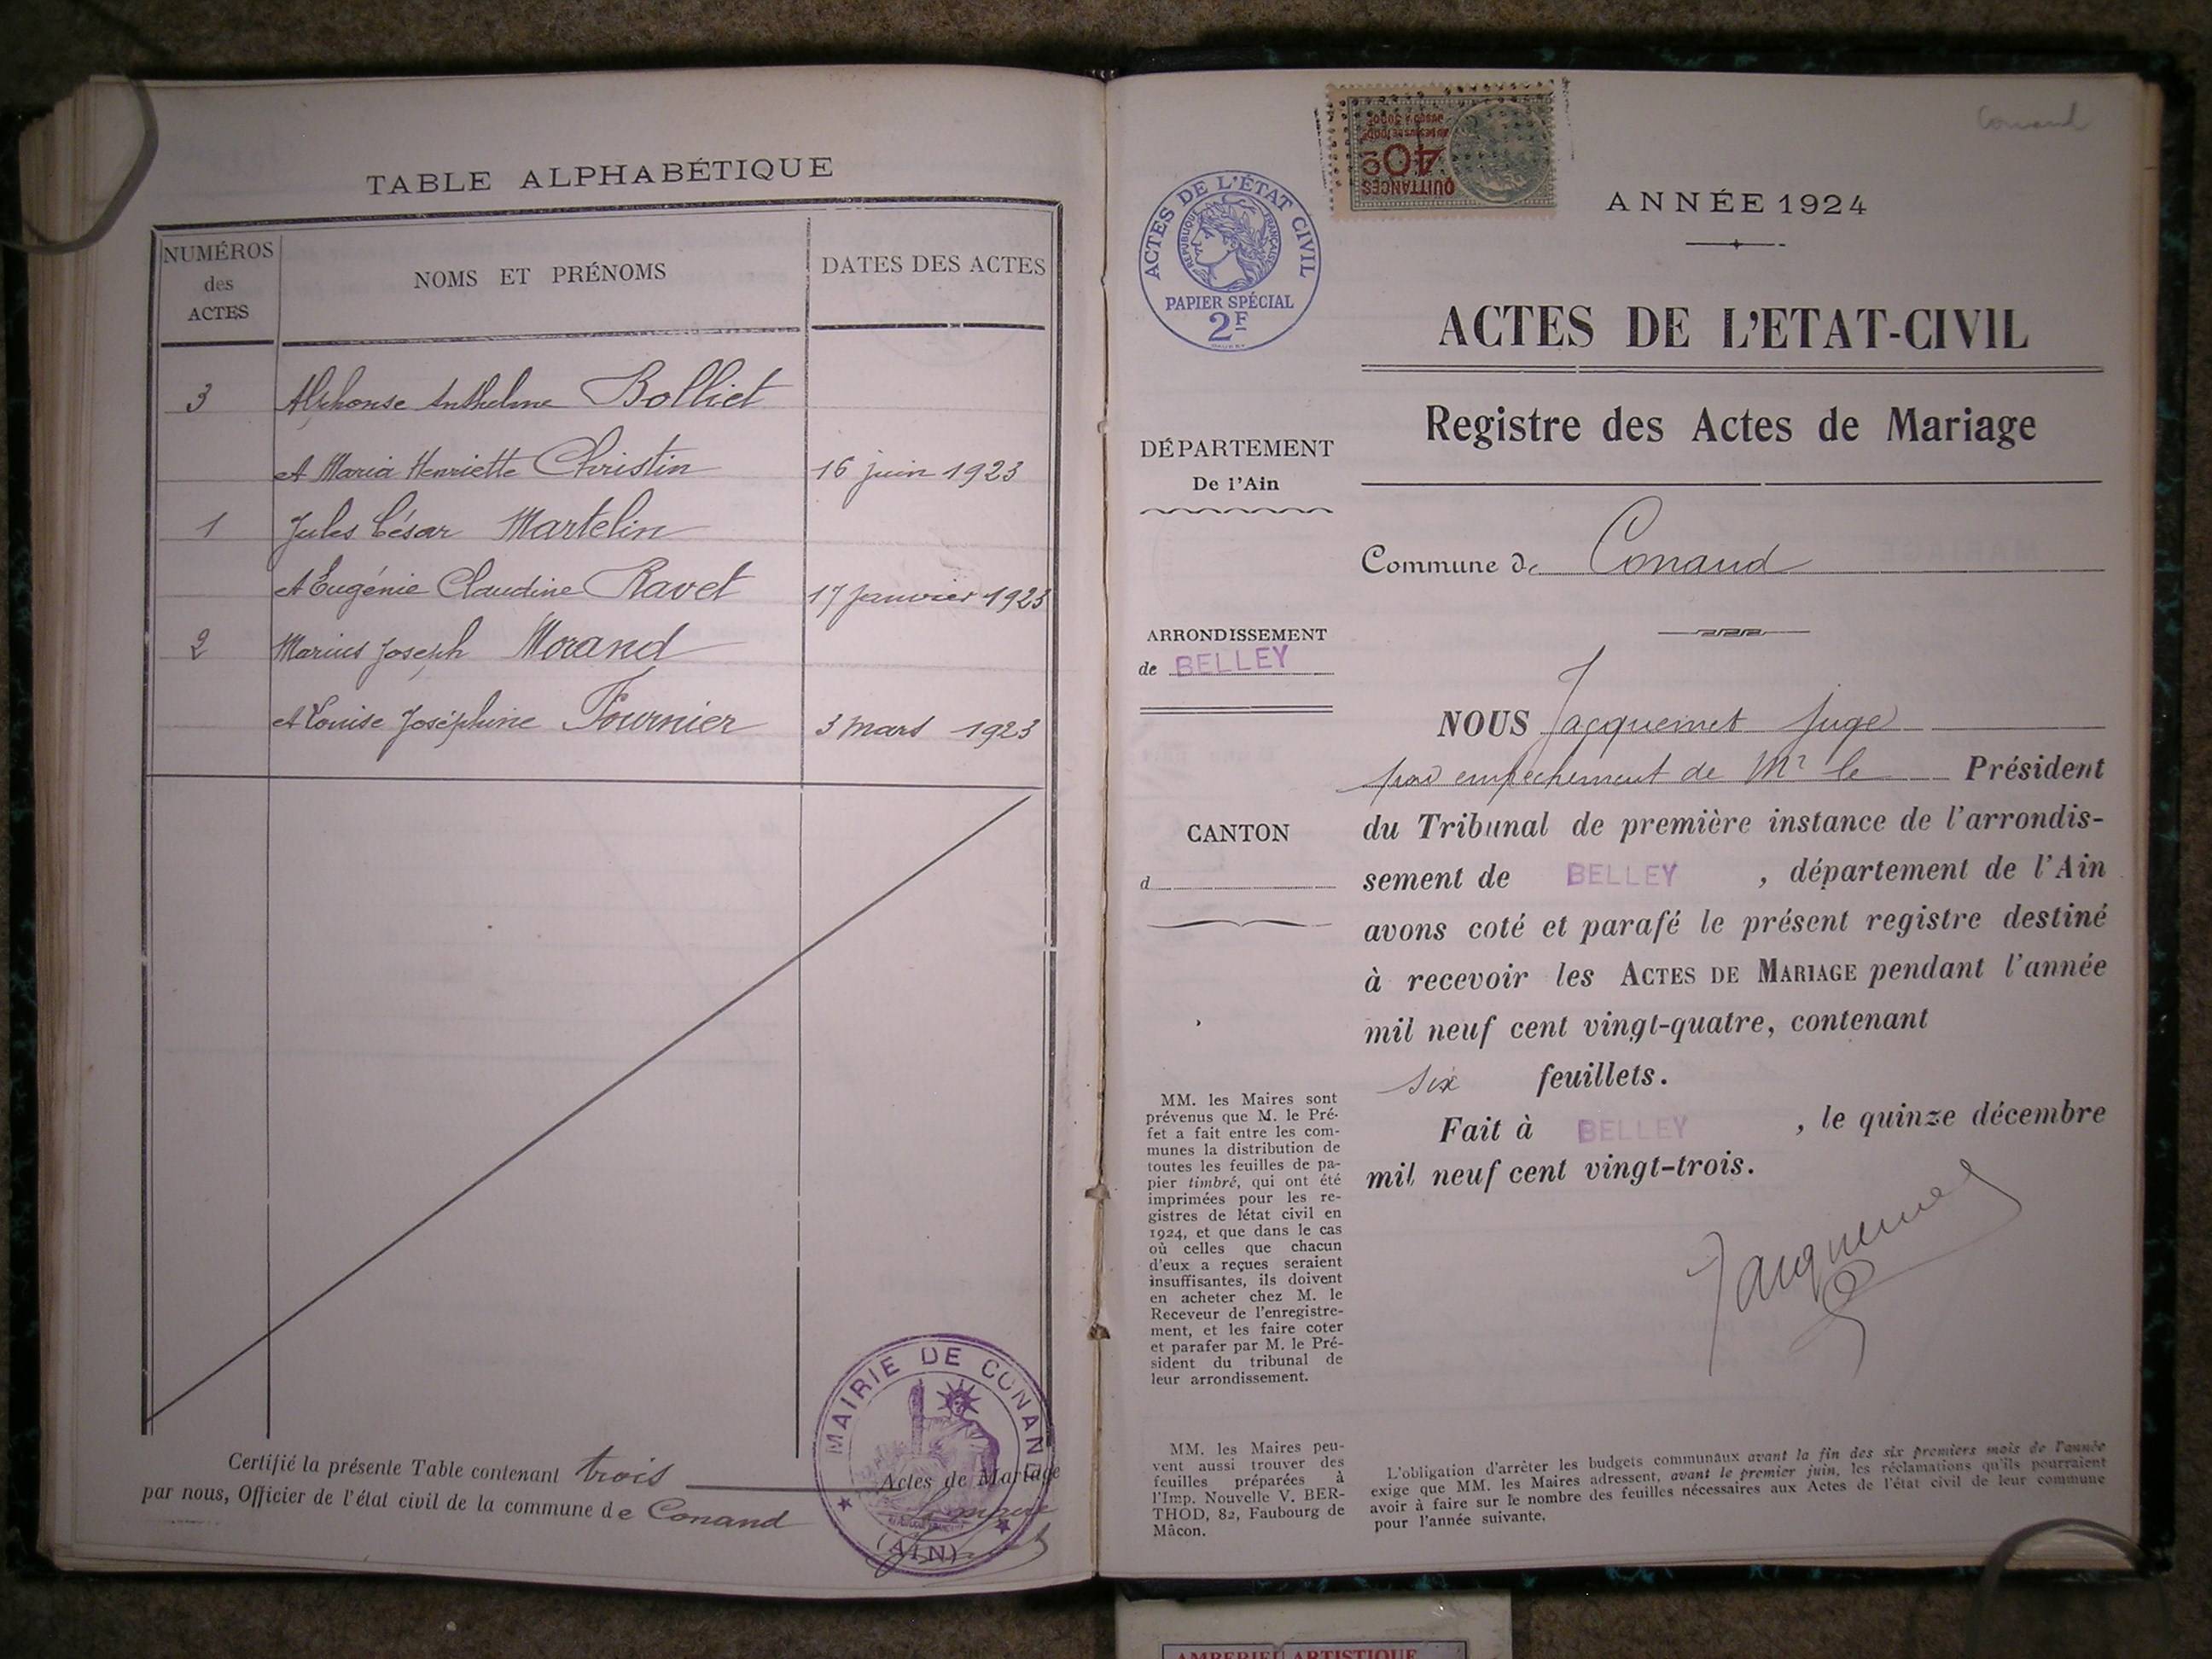 TABLE ALPHABÉTIQUE
NUMÉROS des ACTES
NOMS ET PRÉNOMS
DATES DES ACTES
3 Alphonse Anthelme Bolliet
et Maria Henriette Christin 16 juin 1923
1 Jules César Martelin
et Eugénie Claudine Ravet 17 Janvier 1923
2 Marius Joseph Morand
et Louise Joséphine Fournier 3 mars 1923
Certifié la présente Table contenant trois Actes de Mariage
par nous, Officier de l'état civil de la commune de Conand
Le maire
MAIRIE DE CONAND
(AIN)
Conand
QUITTANCES
40c
ACTES DE L'ÉTAT CIVIL
RÉPUBLIQUE FRANÇAISE
PAPIER SPÉCIAL
2F
ANNÉE 1924
ACTES DE L'ETAT-CIVIL
Registre des Actes de Mariage
DÉPARTEMENT
De l'Ain
Commune de Conand
ARRONDISSEMENT
de BELLEY
CANTON
d
NOUS Jacquemet Juge
par empêchement de Mr le Président
du Tribunal de première instance de l'arrondis-
sement de BELLEY, département de l'Ain
avons coté et parafé le présent registre destiné
à recevoir les ACTES DE MARIAGE pendant l'année
mil neuf cent vingt-quatre, contenant
six feuillets.
Fait à BELLEY, le quinze décembre
mil neuf cent vingt-trois.
Jacquemet
MM. les Maires sont
prévenus que M. le Pré-
fet a fait entre les com-
munes la distribution de
toutes les feuilles de pa-
pier timbré, qui ont été
imprimées pour les re-
gistres de létat civil en
1924, et que dans le cas
où celles que chacun
d'eux a reçues seraient
insuffisantes, ils doivent
en acheter chez M. le
Receveur de l'enregistre-
ment, et les faire coter
et parafer par M. le Pré-
sident du tribunal de
leur arrondissement.
MM. les Maires peu-
vent aussi trouver des
feuilles préparées à
l'Imp. Nouvelle V. BER-
THOD, 82, Faubourg de
Mâcon.
L'obligation d'arrêter les budgets communaux avant la fin des six premiers mois de l'année
exige que MM. les Maires adressent, avant le premier juin, les réclamations qu'ils pourraient
avoir à faire sur le nombre des feuilles nécessaires aux Actes de l'état civil de leur commune
pour l'année suivante.
AMBERIEU ARTISTIQUE